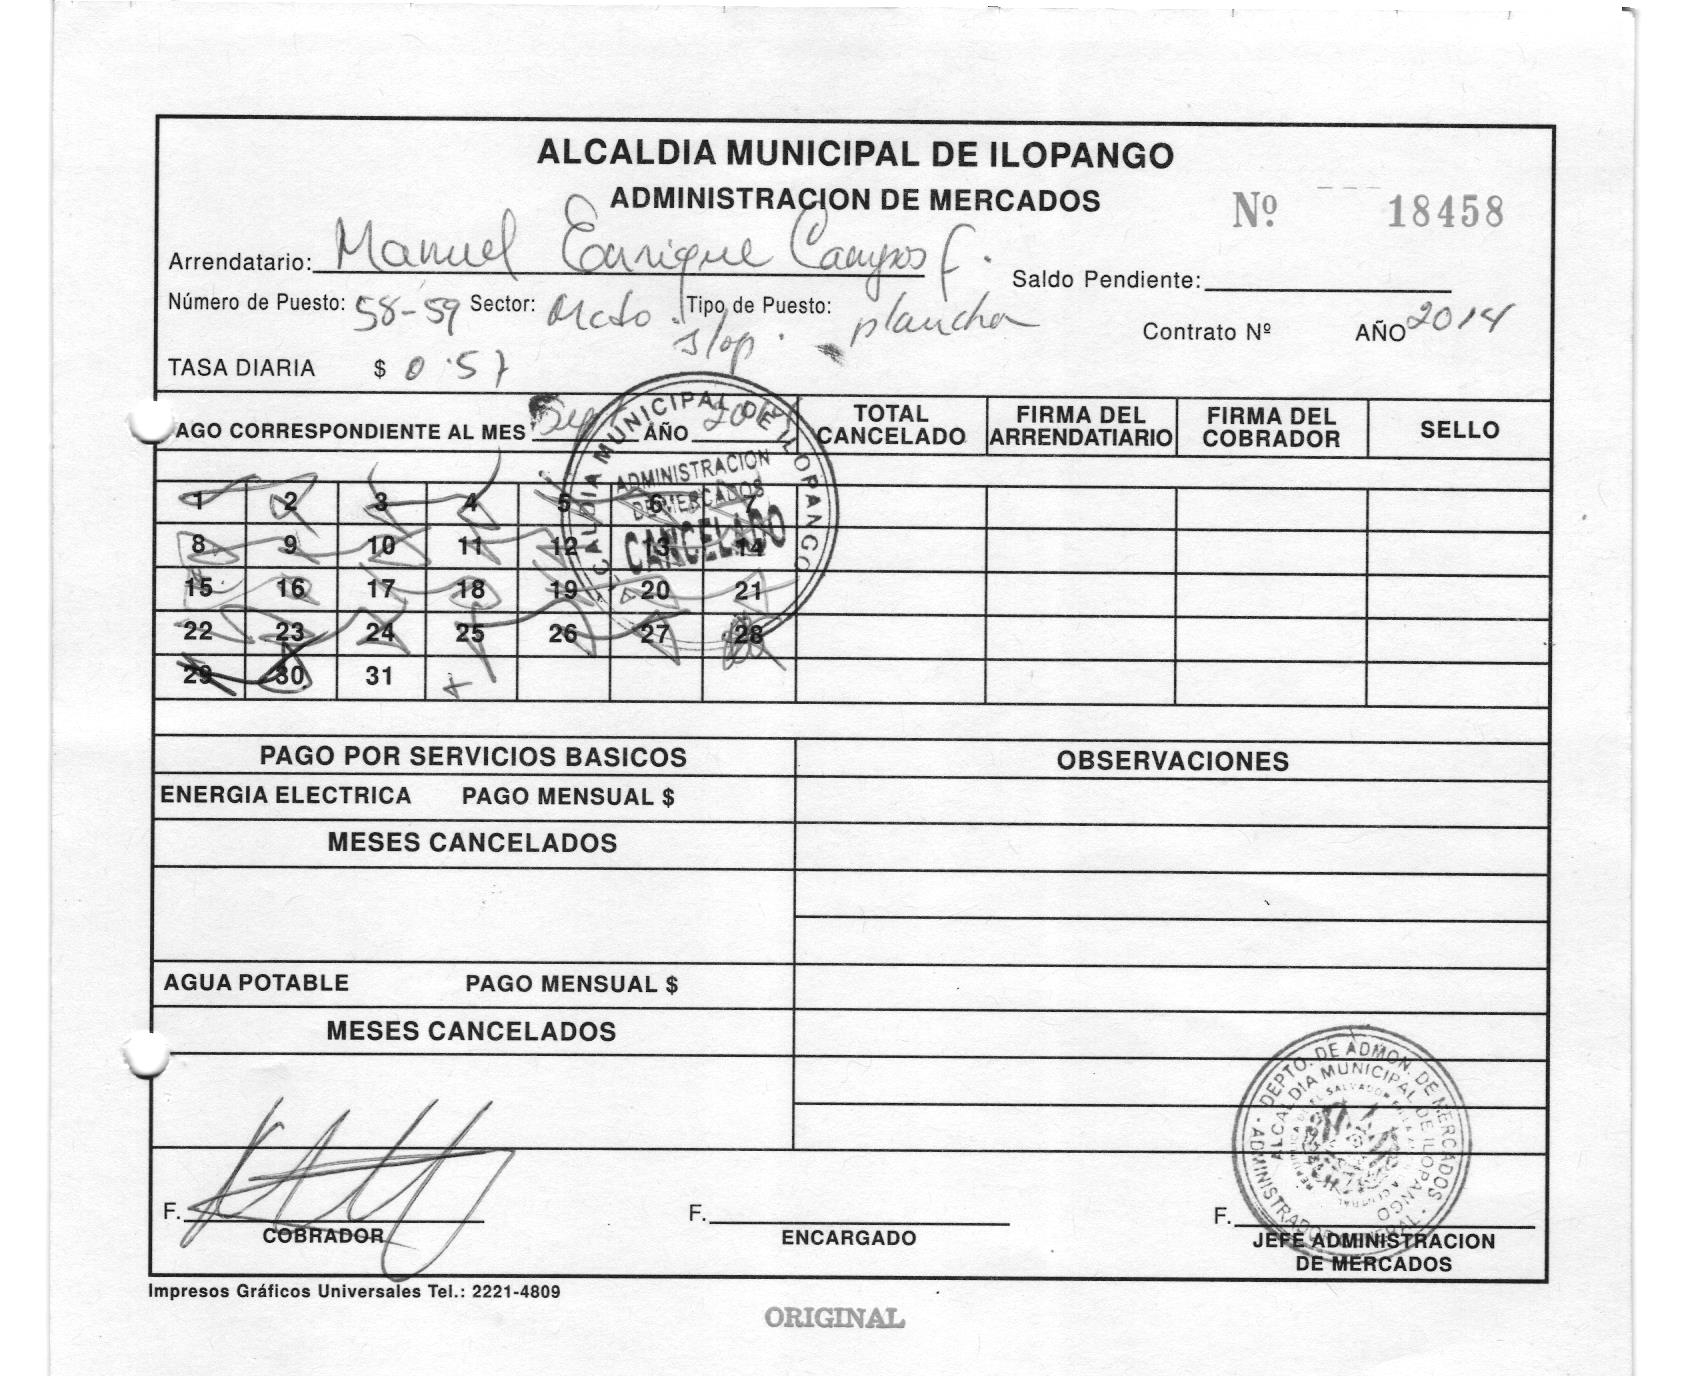 ALCALDIA MUNICIPAL DE ILOPANGO
ADMINISTRACION DE MERCADOS
Nº 18458
Arrendatario: Manuel Enrique Campos F.
Saldo Pendiente:
Número de Puesto: 58-59 Sector: Mcdo. Ilop. Tipo de Puesto: plancha
Contrato Nº AÑO 2014
TASA DIARIA $ 0.57
AGO CORRESPONDIENTE AL MES Sep AÑO TOTAL CANCELADO FIRMA DEL ARRENDATIARIO FIRMA DEL COBRADOR SELLO
ALCALDIA MUNICIPAL DE ILOPANGO
ADMINISTRACION
DE MERCADOS
CANCELADO
1 2 3 4 5 6 7
8 9 10 11 12 13 14
15 16 17 18 19 20 21
22 23 24 25 26 27 28
29 30 31
PAGO POR SERVICIOS BASICOS OBSERVACIONES
ENERGIA ELECTRICA PAGO MENSUAL $
MESES CANCELADOS
AGUA POTABLE PAGO MENSUAL $
MESES CANCELADOS
DEPTO. DE ADMON. DE MERCADOS
ALCALDIA MUNICIPAL DE ILOPANGO
ADMINISTRADOR GENERAL
F. F. F.
COBRADOR ENCARGADO JEFE ADMINISTRACION
DE MERCADOS
Impresos Gráficos Universales Tel.: 2221-4809
ORIGINAL